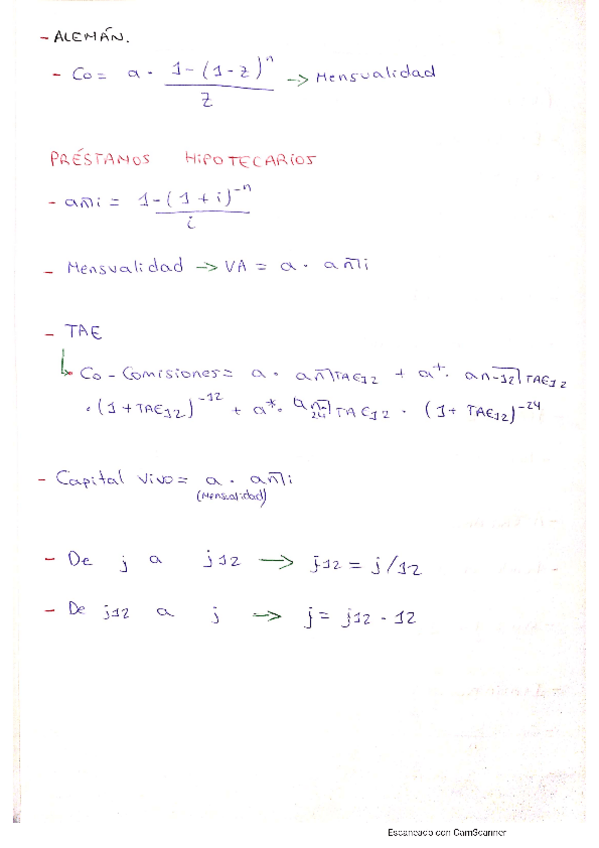 - ALEMÁN.
- Co = a · 1-(1-z)^n / z -> Mensualidad
PRÉSTAMOS HIPOTECARIOS
- an̅i = 1-(1+i)^-n / i
- Mensualidad -> VA = a · an̅i
- TAE
Co - Comisiones = a · an̅|TAE12 + a*· an-12̅|TAE12
·(1+TAE12)^-12 + a*· an-24̅|TAE12 · (1+TAE12)^-24
- Capital vivo = a · an̅i
(Mensualidad)
- De j a j12 -> j12 = j/12
- De j12 a j -> j = j12 · 12
Escaneado con CamScanner